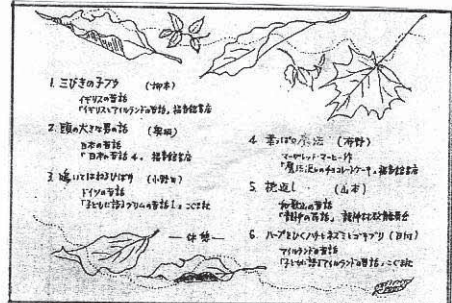 1.三びきの子ブタ
イギリスの昔話
「イギリスとアイルランドの昔話」 福音館書店
2. 頭の大きな男の話
日本の昔話
「日本の昔話 4」 福音館書店
3. 鳴いてはねるひばり (小野寺)
ドイツの昔話
「子どもに語るグリムの昔話 1」 こぐま社
— 休憩 —
4. 葉っぱの魔法
マーガレット・マーヒー作
「魔法使いのチョコレートケーキ」 福音館書店
5. 枕返し (山本)
和歌山の昔話
「龍神の昔話」 龍神村教育委員会
6. ハープをひくハチとネズミとゴキブリ
アイルランドの昔話
「子どもに語るアイルランドの昔話」 こぐま社